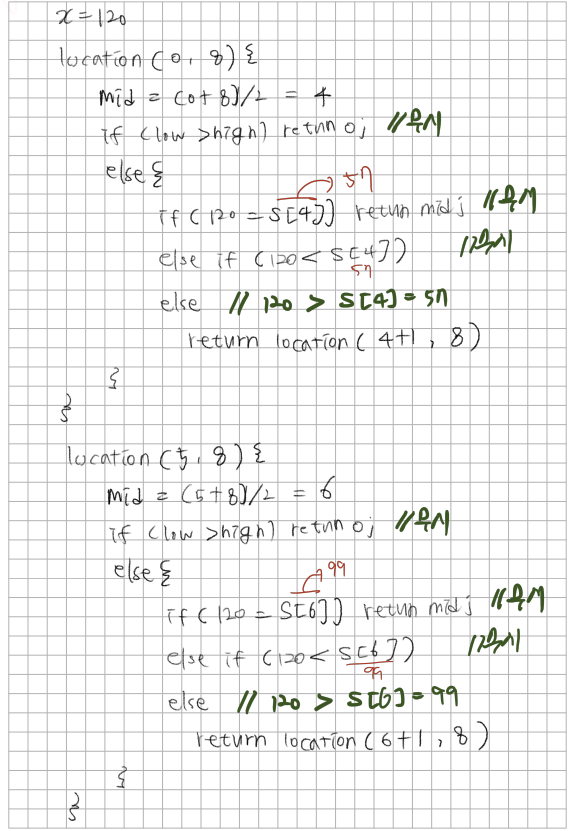 x=120
location (0, 8) {
mid = (0+8)/2 = 4
if (low >high) return 0; //무시
else {
57
if ( 120 = S[4]) return mid; //무시
else if (120 < S[4]) //무시
57
else // 120 > S[4] = 57
return location( 4+1 , 8)
}
}
location (5, 8) {
mid = (5+8)/2 = 6
if (low >high) return 0; //무시
else {
99
if ( 120 = S[6]) return mid; //무시
else if (120 < S[6]) //무시
99
else // 120 > S[6] = 99
return location ( 6+1 , 8 )
}
}